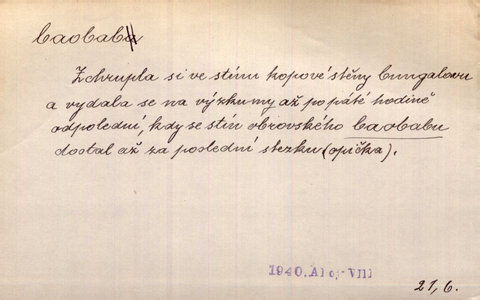 baobab
Zchrupla si ve stínu kopové stěny bungalovu
a vydala se na výzkumy až po páté hodině
odpolední, kdy se stín obrovského baobabu
dostal až za poslední stezku (opička).
1940.
21, 6.